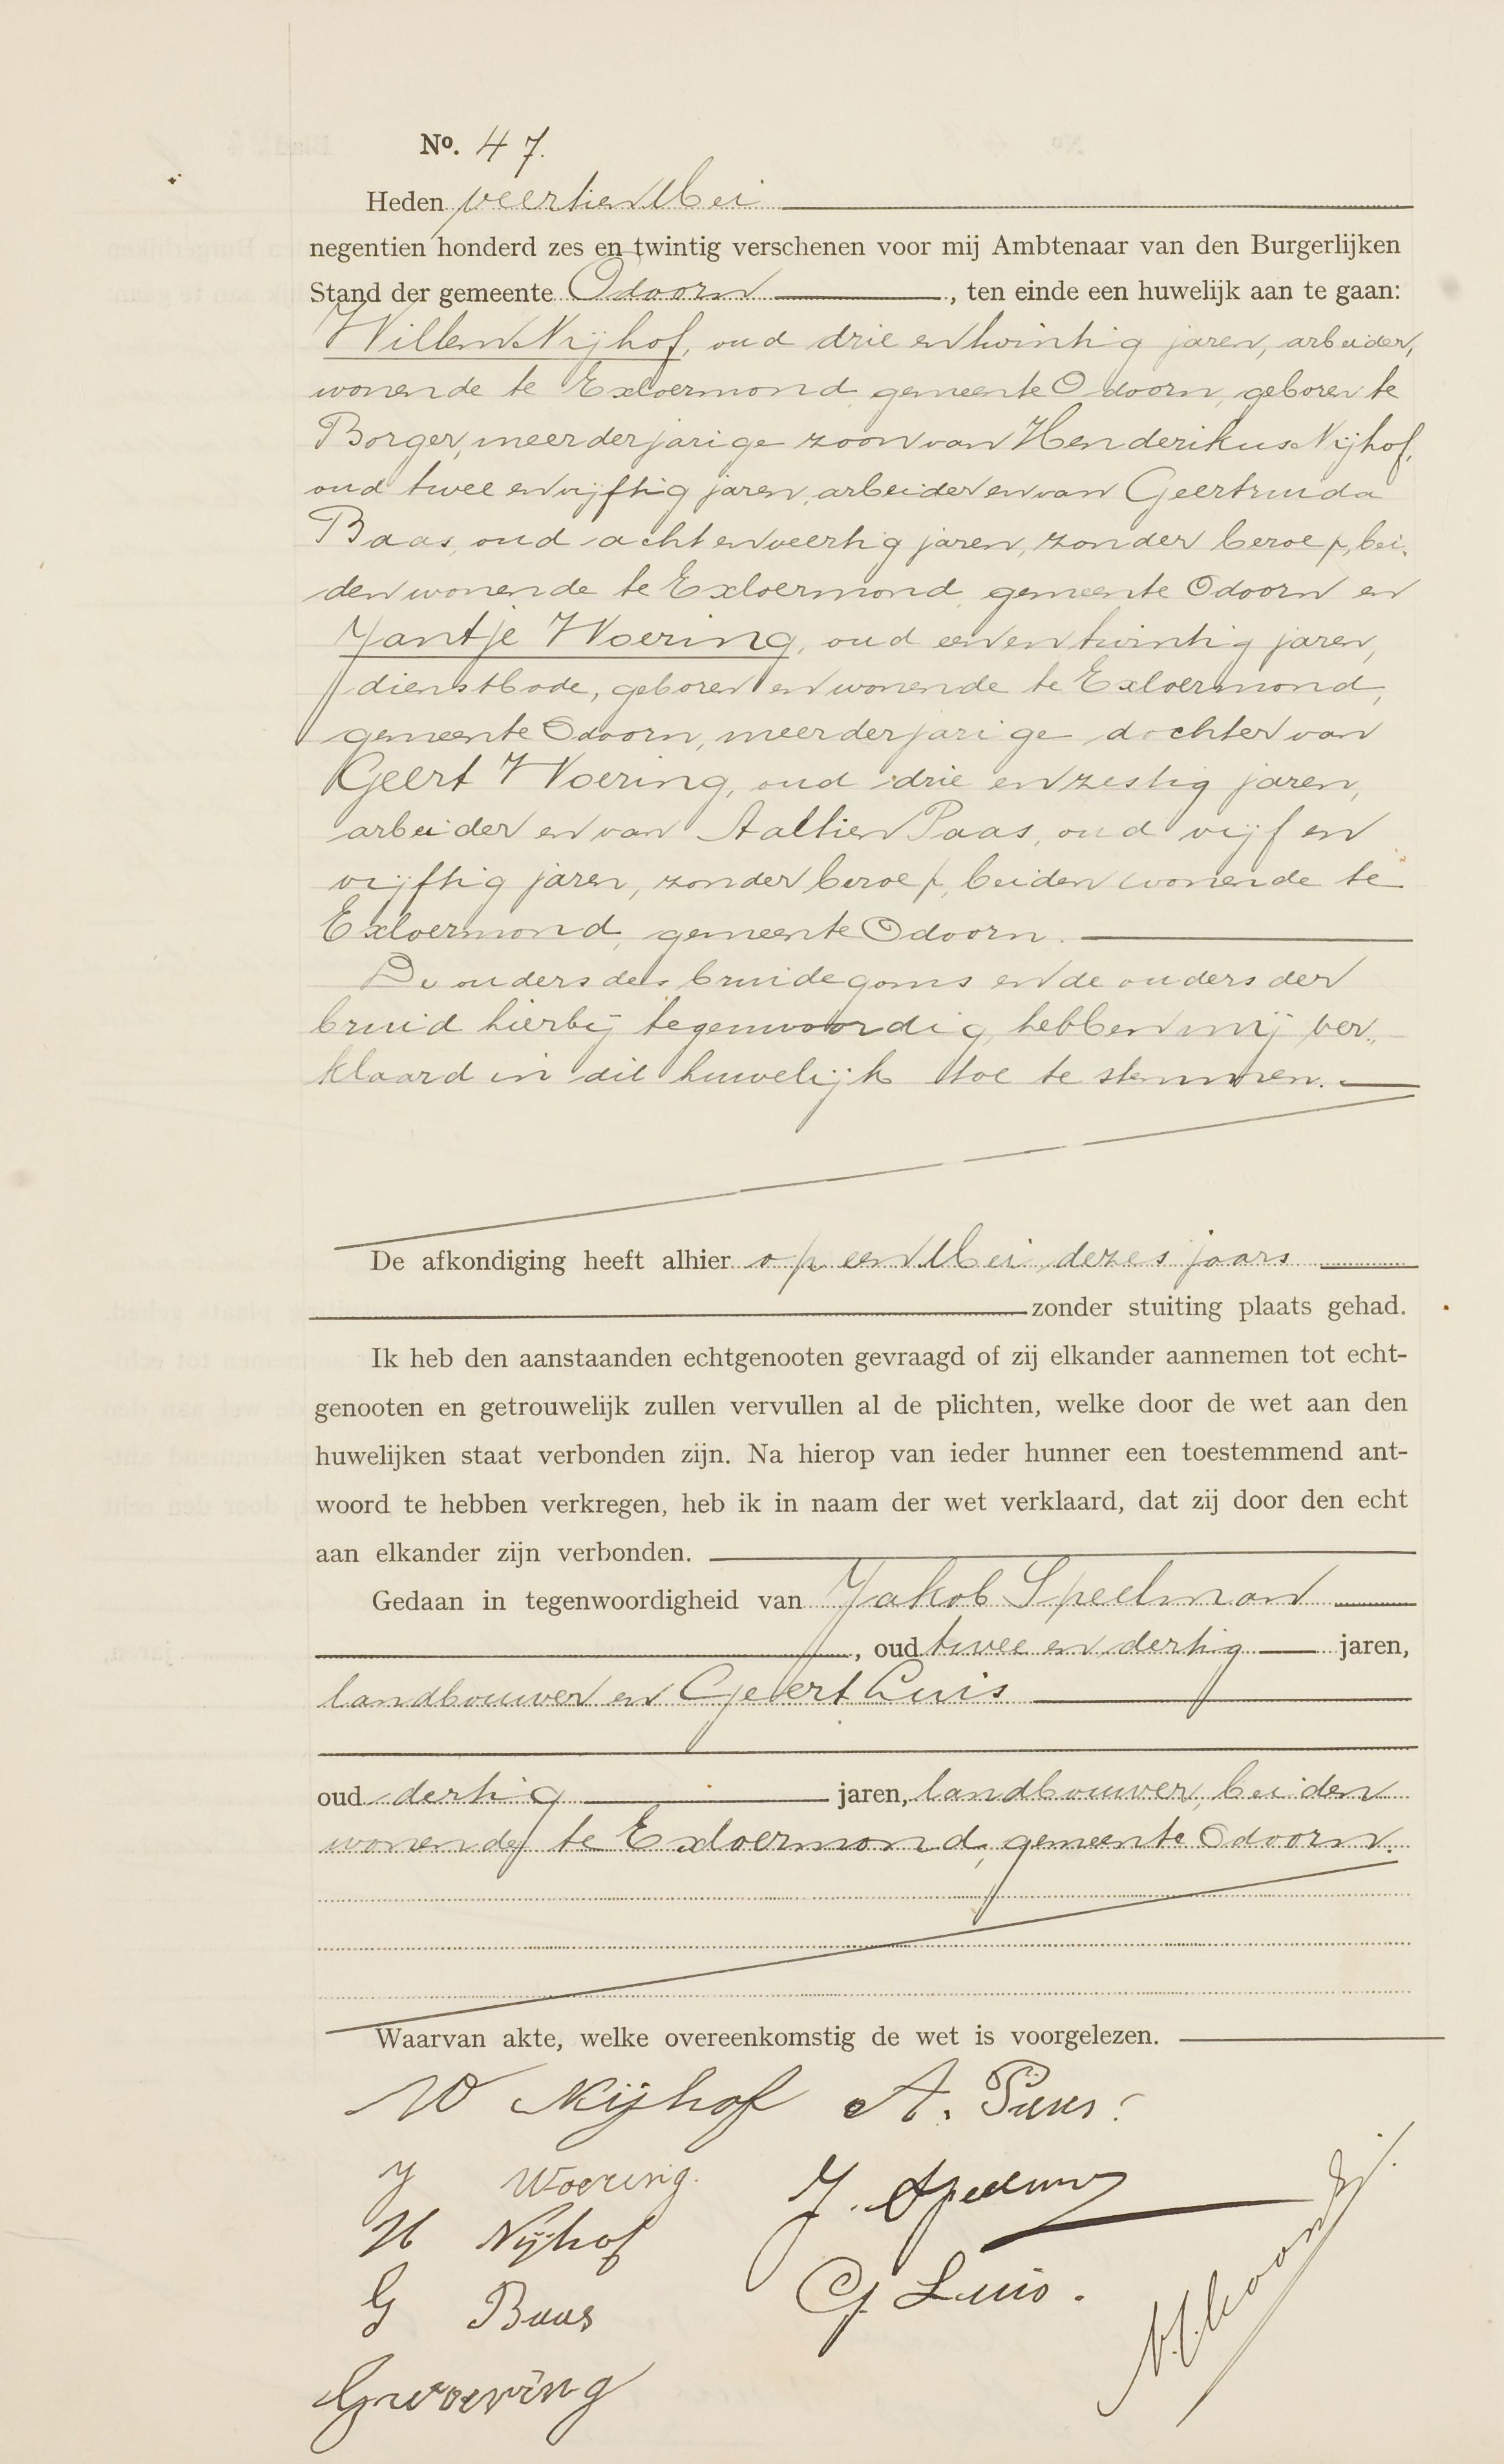 Nº. 47.
Heden veertien Mei
negentien honderd zes en twintig verschenen voor mij Ambtenaar van den Burgerlijken
Stand der gemeente Odoorn, ten einde een huwelijk aan te gaan:
Willem Nijhof, oud drie en twintig jaren, arbeider,
wonende te Exloermond, gemeente Odoorn, geboren te
Borger, meerderjarige zoon van Henderikus Nijhof,
oud twee en vijftig jaren, arbeider en van Geertruida
Baas, oud acht en veertig jaren, zonder beroep, bei-
den wonende te Exloermond, gemeente Odoorn en
Jantje Woering, oud een en twintig jaren,
dienstbode, geboren en wonende te Exloermond,
gemeente Odoorn, meerderjarige dochter van
Geert Woering, oud drie en zestig jaren,
arbeider en van Aaltien Paas, oud vijf en
vijftig jaren, zonder beroep, beiden wonende te
Exloermond, gemeente Odoorn.
De ouders des bruidegoms en de ouders der
bruid hierbij tegenwoordig, hebben mij ver-
klaard in dit huwelijk toe te stemmen.
De afkondiging heeft alhier op een Mei dezes jaars
zonder stuiting plaats gehad.
Ik heb den aanstaanden echtgenooten gevraagd of zij elkander aannemen tot echt-
genooten en getrouwelijk zullen vervullen al de plichten, welke door de wet aan den
huwelijken staat verbonden zijn. Na hierop van ieder hunner een toestemmend ant-
woord te hebben verkregen, heb ik in naam der wet verklaard, dat zij door den echt
aan elkander zijn verbonden.
Gedaan in tegenwoordigheid van Jakob Speelman
, oud twee en dertig jaren,
landbouwer en Geert Luis
oud dertig jaren, landbouwer, beiden
wonende te Exloermond, gemeente Odoorn.
Waarvan akte, welke overeenkomstig de wet is voorgelezen.
W Nijhof A. Paas.
J Woering. J. Speelman
H Nijhof
G Baas G Luis.
G Woering